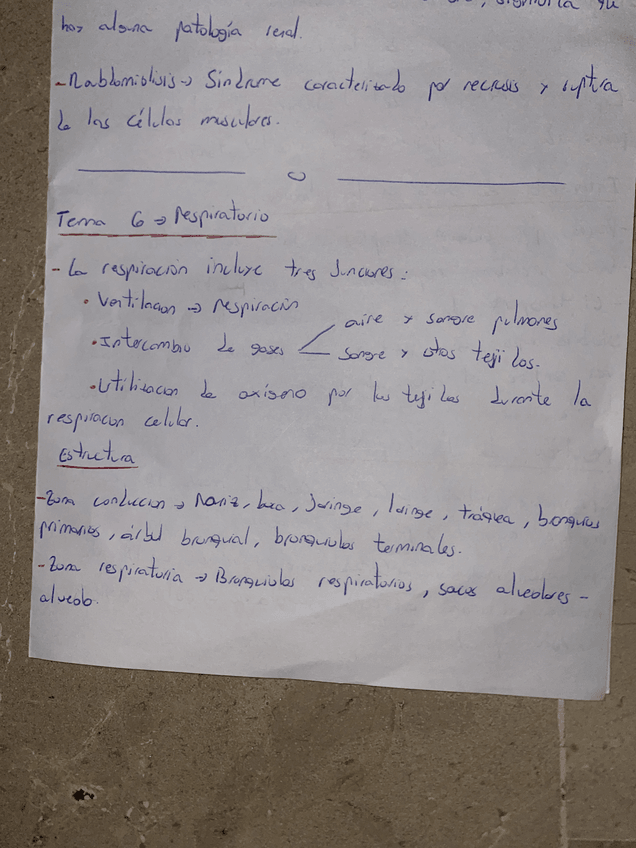 , significa que
hay alguna patología renal.
- Rabdomiolisis → Síndrome caracterizado por necrosis y ruptura
de las células musculares.
Tema 6 → Respiratorio
- La respiración incluye tres funciones:
• Ventilacion → respiración
aire y sangre pulmones
• Intercambio de gases
sangre y otros tejidos.
• Utilizacion de oxígeno por los tejidos durante la
respiracion celular.
Estructura
- Zona conduccion → Nariz, boca, faringe, laringe, tráquea, bronquios
primarios, árbol bronquial, bronquiolos terminales.
- Zona respiratoria → Bronquiolos respiratorios, sacos alveolares -
alveolo.